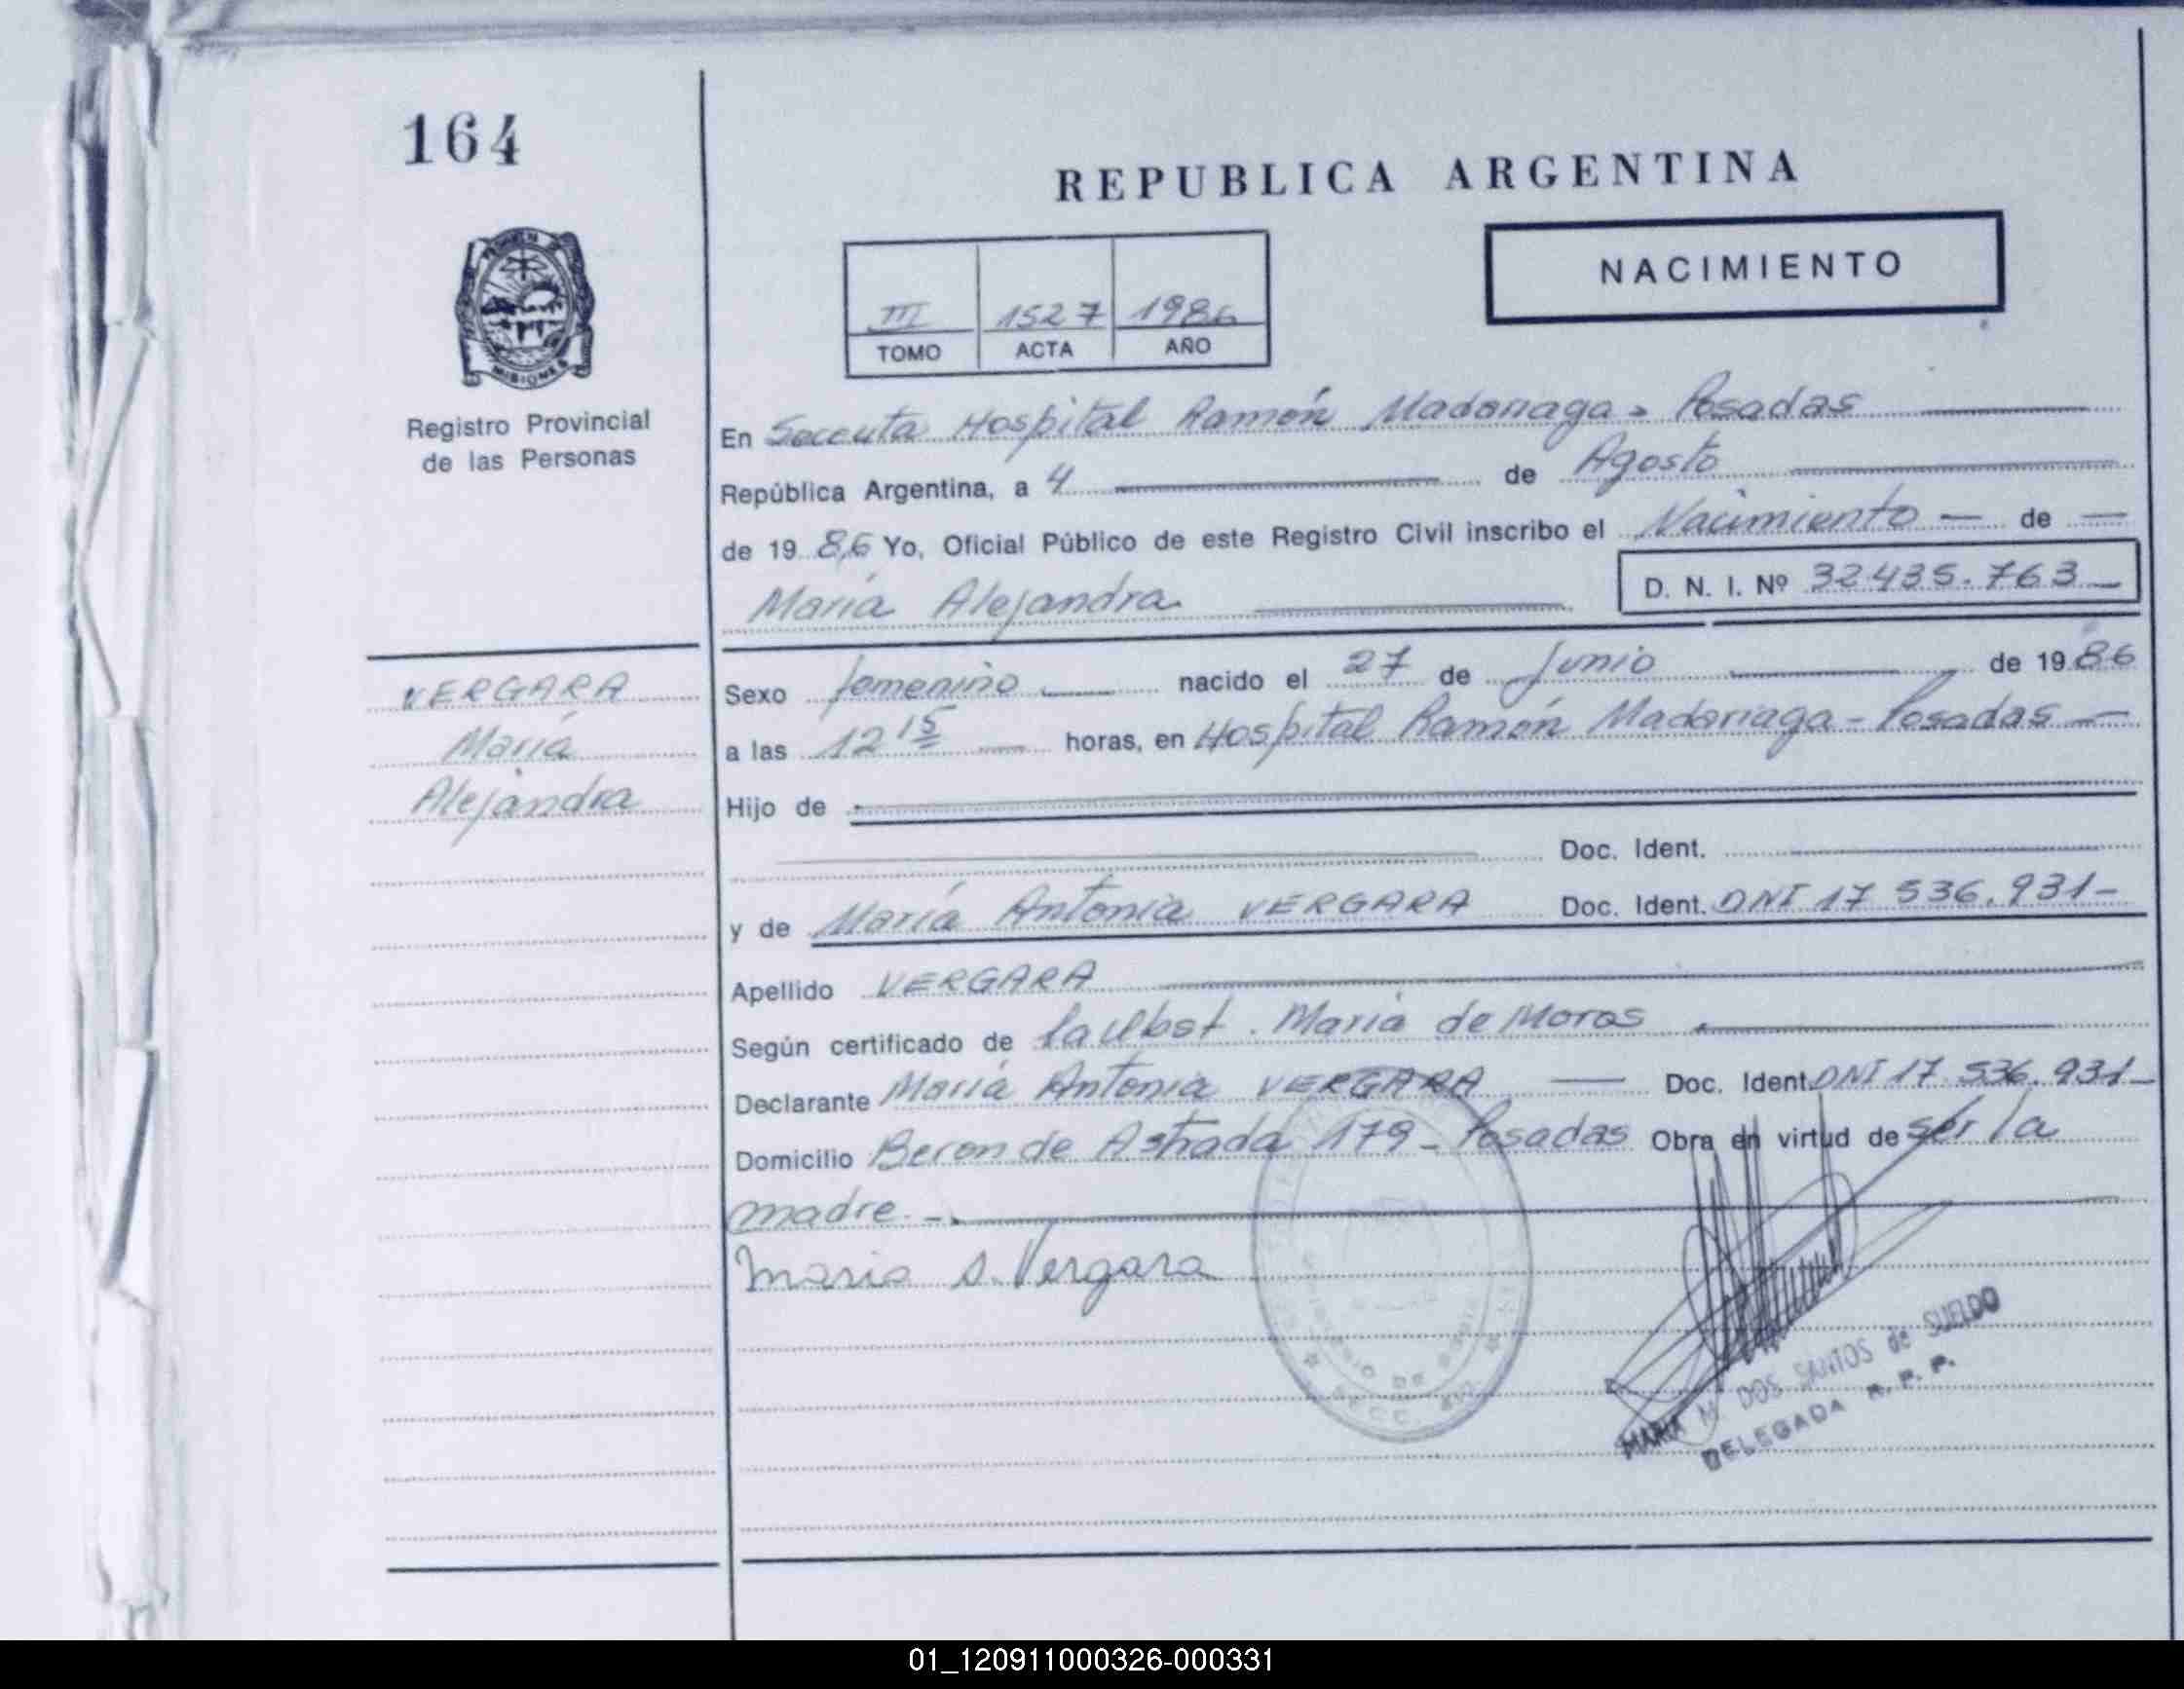 164
REPUBLICA ARGENTINA
NACIMIENTO
III 1527 1986
TOMO ACTA AÑO
MISIONES
Registro Provincial
de las Personas
En Hospital Ramón Madariaga - Posadas
República Argentina, a 4 de Agosto
de 19 86 Yo, Oficial Público de este Registro Civil inscribo el Nacimiento de
María Alejandra
D. N. I. Nº 32435.763
VERGARA
María
Alejandra
Sexo femenino nacido el 27 de Junio de 19 86
a las 12 15 horas, en Hospital Ramón Madariaga - Posadas
Hijo de
Doc. Ident.
y de María Antonia VERGARA Doc. Ident. DNI 17 536.931
Apellido VERGARA
Según certificado de María de Moras
Declarante María Antonia VERGARA Doc. Ident. DNI 17.536.931
Domicilio Beron de Astrada 179 - Posadas Obra en virtud de ser la
madre.
Maria A. Vergara
MARIA M. DOS SANTOS de SUELDO
DELEGADA R. P. P.
01_120911000326-000331